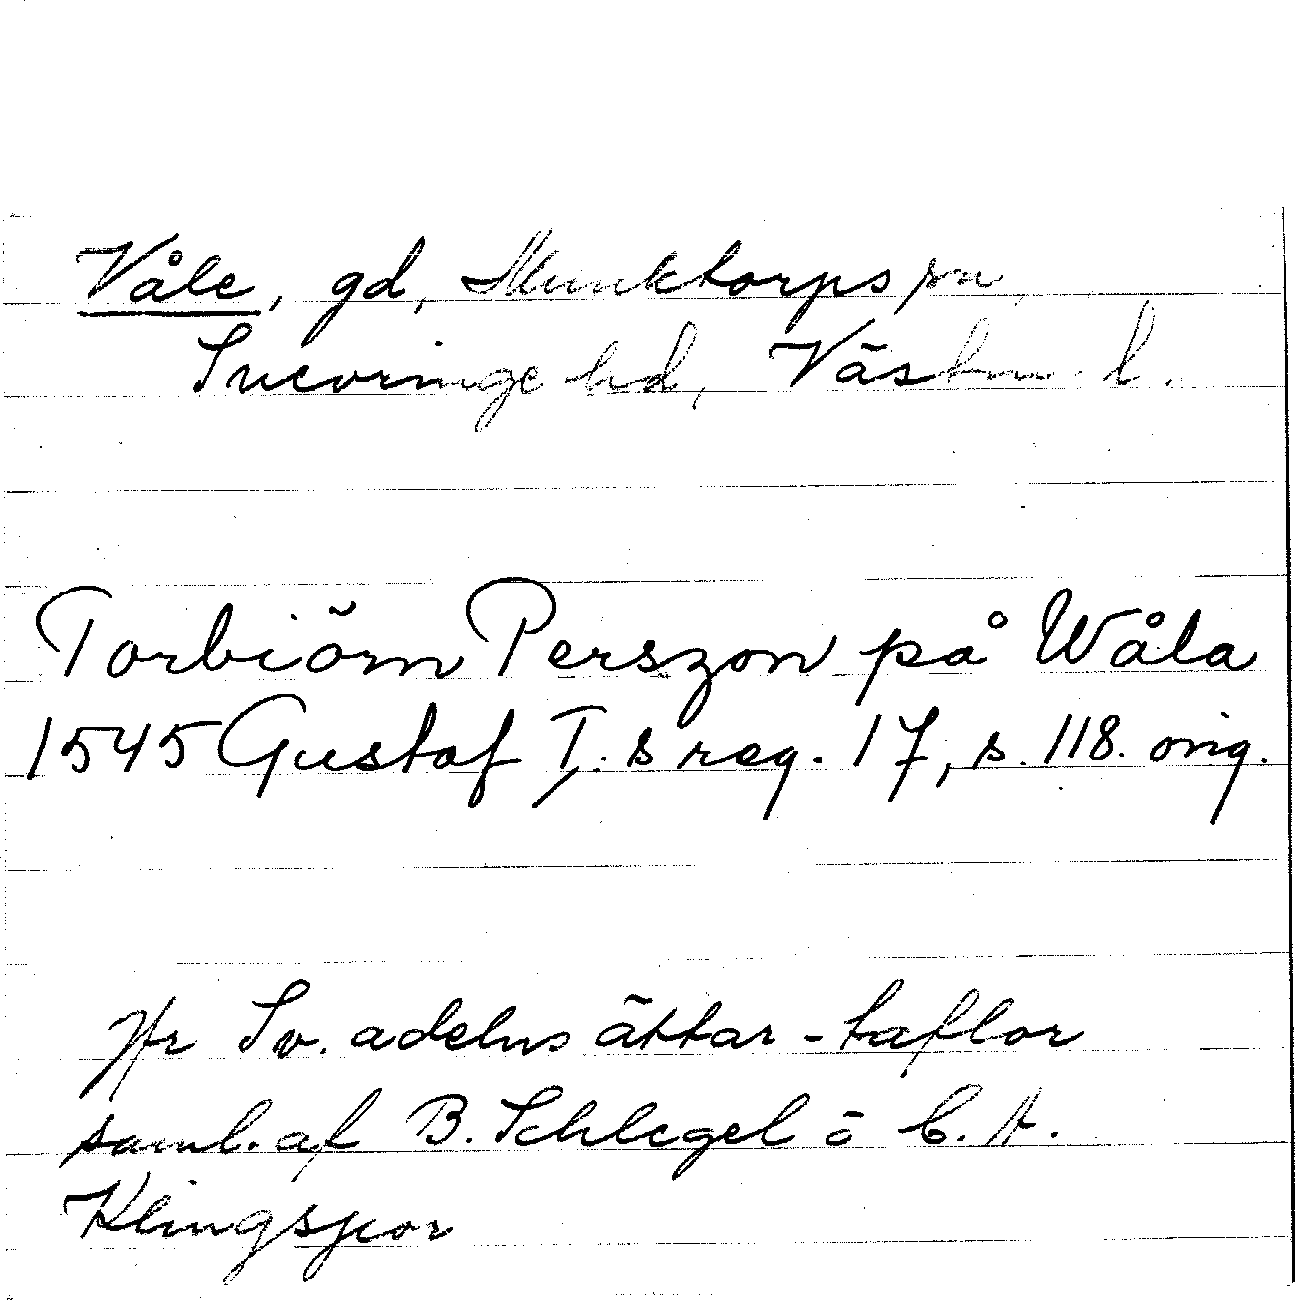 Våle, gd, Munktorps sn,
Snevringe hd, Västm. l.
Torbiörn Perszon på Wåla
1545 Gustaf I:s reg. 17, s. 118. orig.
Jfr Sv. adelns ättar-taflor
saml. af B. Schlegel o C. A.
Klingspor